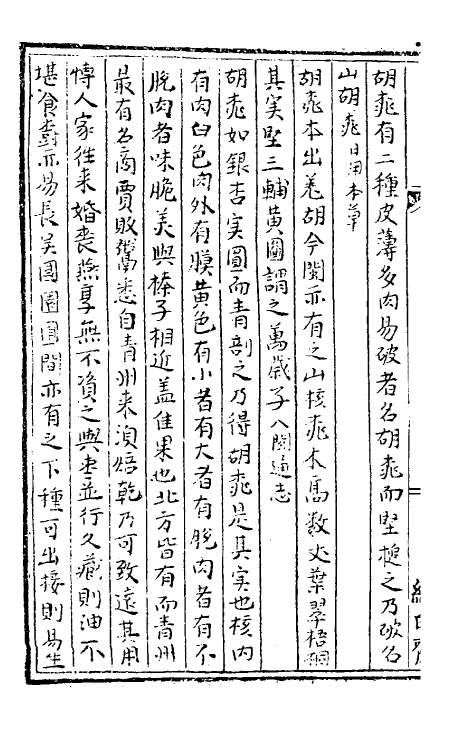 胡桃有二種皮薄多肉易破者名胡桃而堅搥之乃破名
山胡桃日用本草
胡桃本出羌胡今閩亦有之山核桃木高数丈葉翠梧桐
其实堅三輔黄圖謂之萬歲子八閩通志
胡桃如銀杏实圓而青剖之乃得胡桃是其实也核内
有肉白色肉外有膜黄色有小者有大者有脫肉者有不
脫肉者味脆美與榛子相近盖佳果也北方皆有而青州
最有名商賈販鬻悉自青州来湏焙乾乃可致遠其用
愽人家徃来婚喪燕享無不資之與枣並行久藏則油不
堪食樹亦易長吴國園圃間亦有之下種可出接則易生